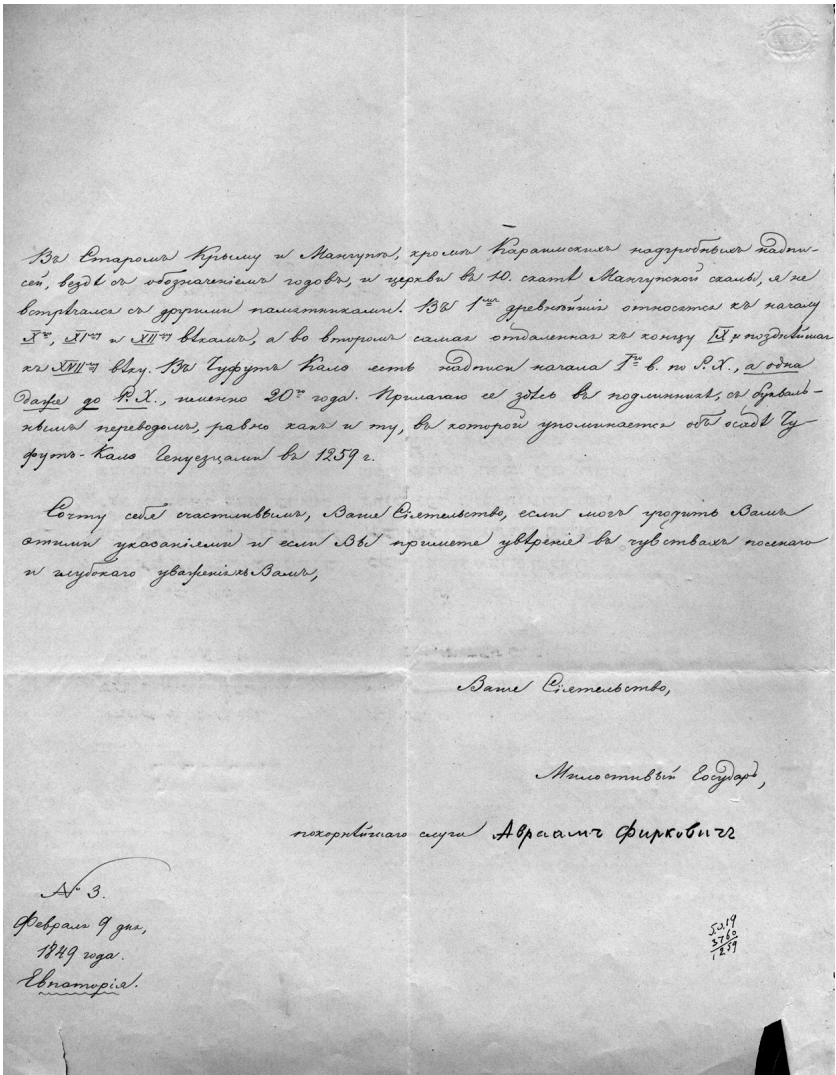 Въ Старомъ Крыму и Мангупѣ, кромѣ Караимскихъ надгробныхъ надпи-
сей, вездѣ съ обозначеніемъ годовъ, и церкви въ Ю. скатѣ Мангупской скалы, я не
встрѣчался съ другими памятниками. Въ 1мъ древнѣйшія относятся къ началу
Xго, XIму и XIIму вѣкамъ, а во второмъ самая отдаленная къ концу IX и позднѣйшая
къ XVIIму вѣку. Въ Чуфутъ Кале есть надписи начала Iго в. по Р. Х., а одна
даже до Р. Х., именно 20го года. Прилагаю ее здѣсь въ подлинникѣ, съ букваль-
нымъ переводомъ, равно какъ и ту, въ которой упоминается объ осадѣ Чу-
футъ-Кале Генуезцами въ 1259 г.
Сочту себя счастливымъ, Ваше Сіятельство, если могъ угодить Вамъ
этими указаніями и если Вы примете увѣреніе въ чувствахъ
и глубокаго уваженія къ Вамъ,
Ваше Сіятельство,
Милостивый Государь,
покорнѣйшаго слуги Авраамъ Фирковичъ
№ 3.
Февраля 9 дня,
1849 года.
Евпаторія.
5019
3760
1259